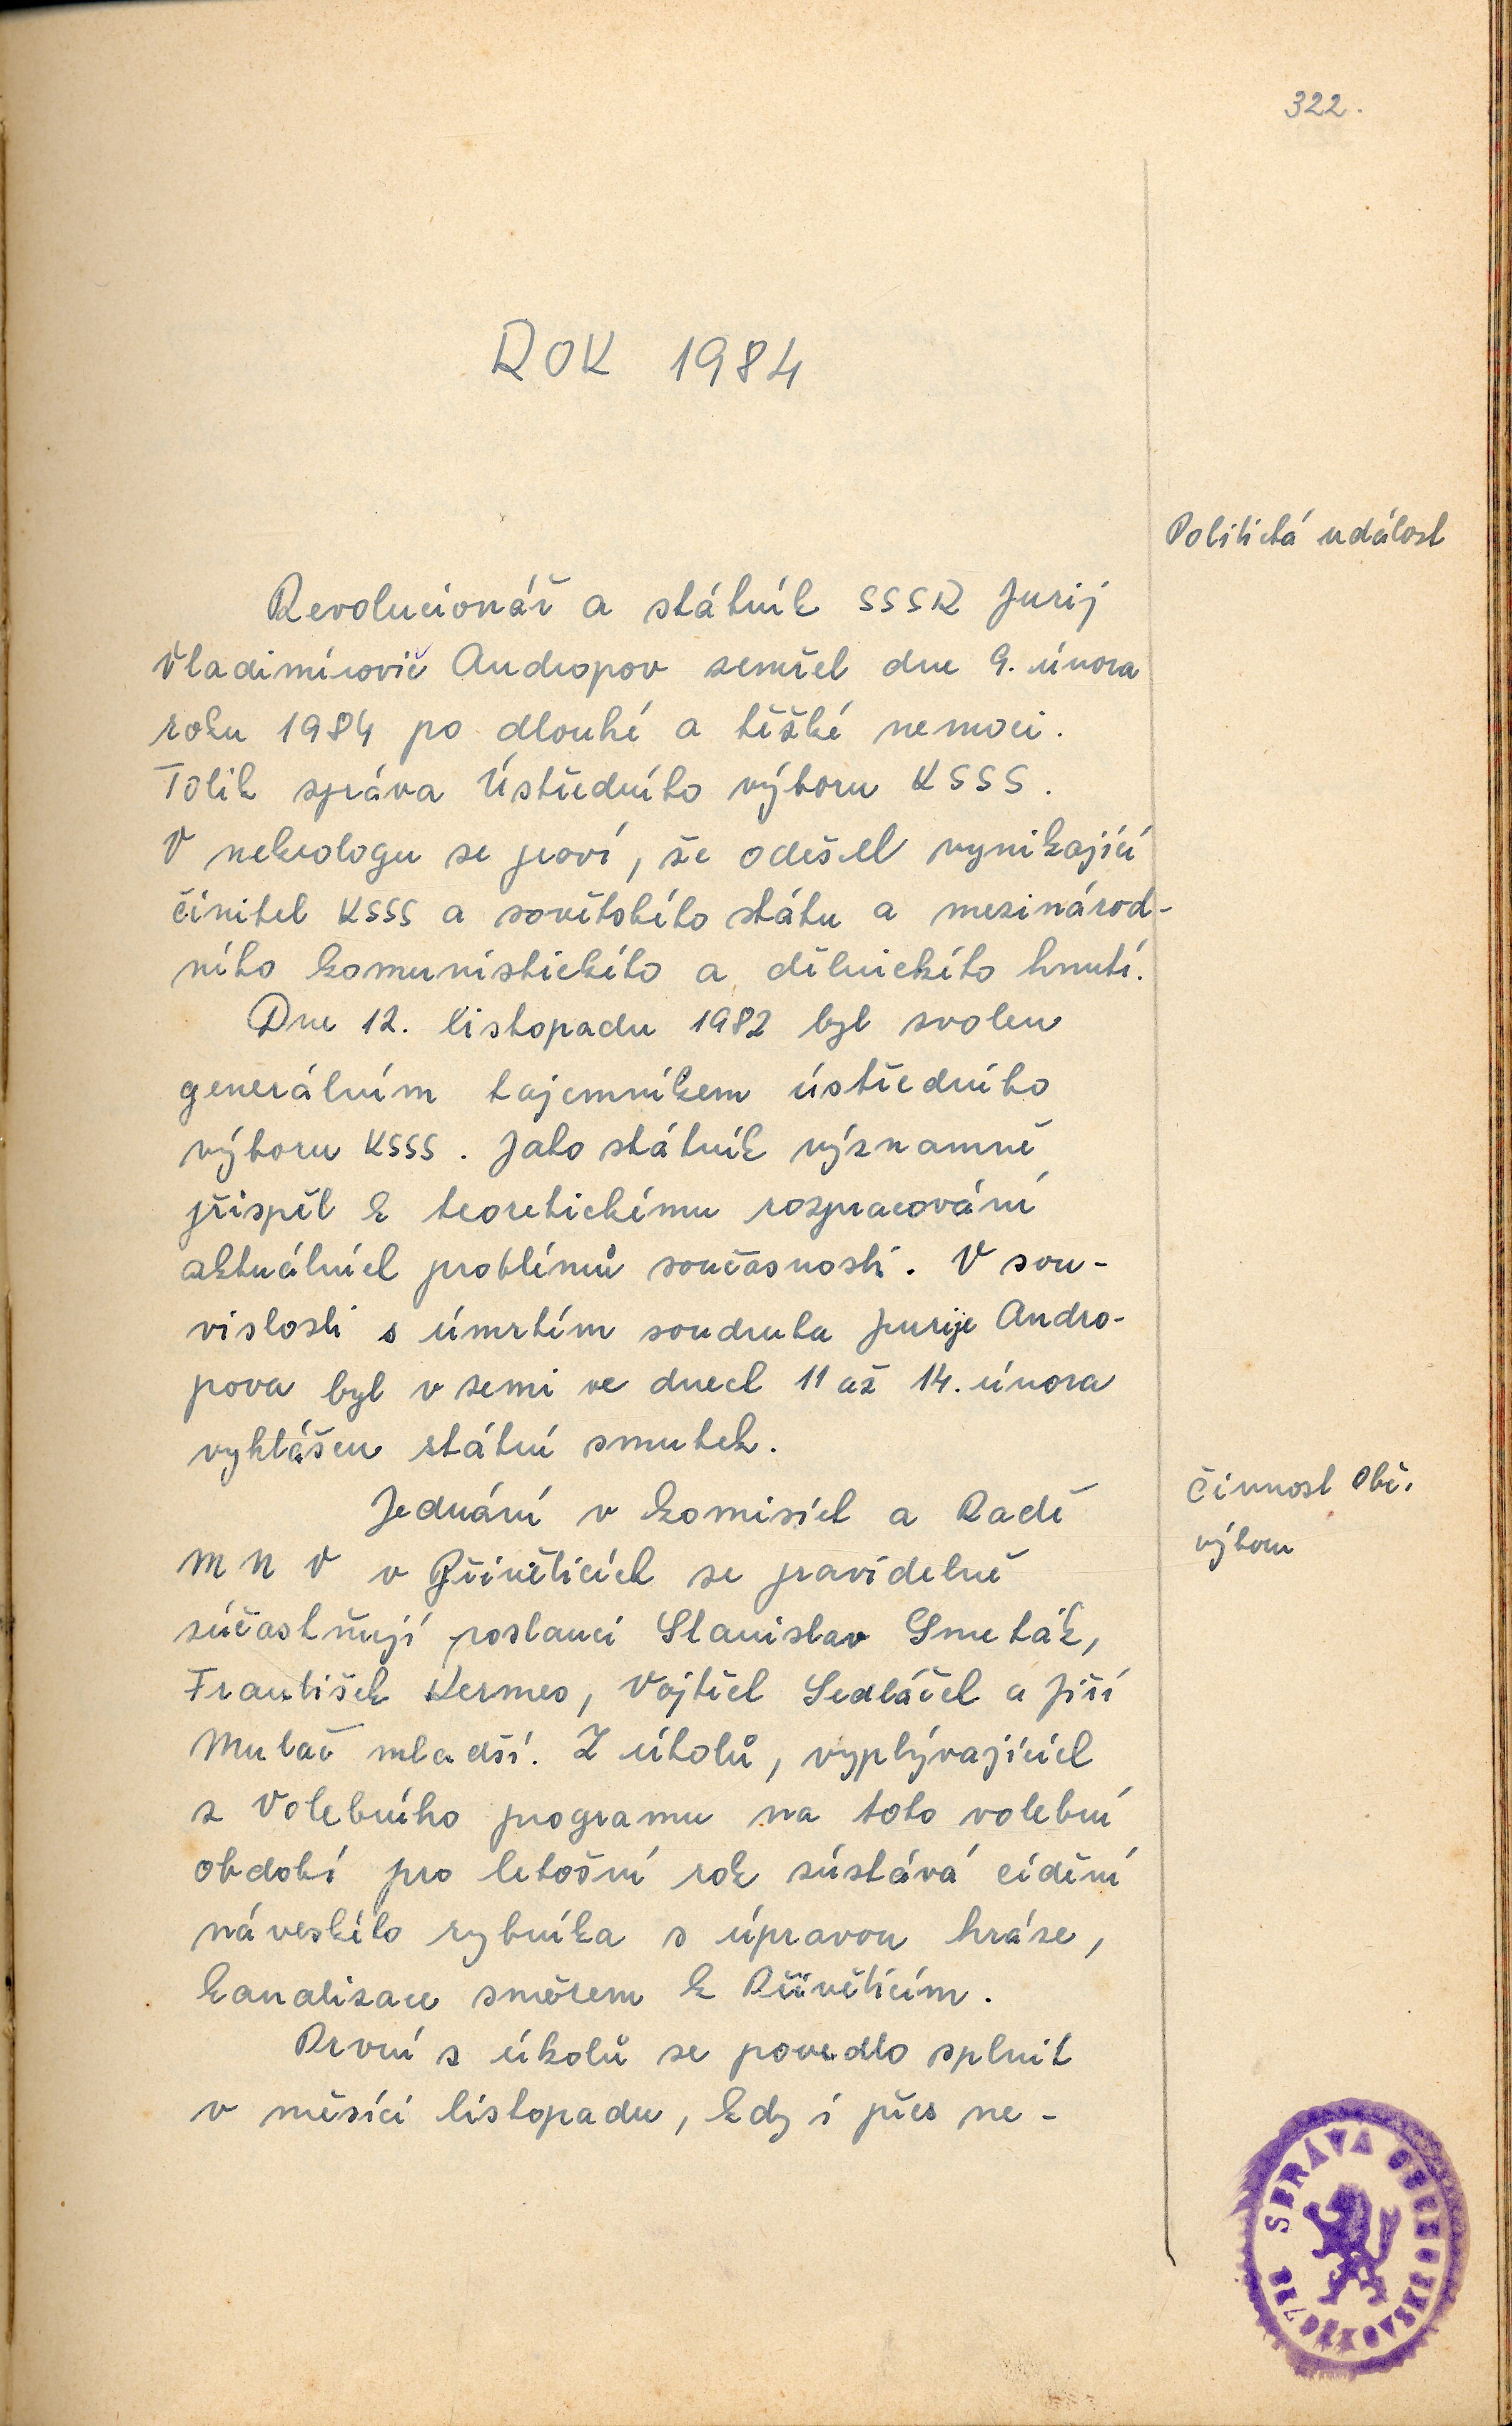 322.
ROK 1984
Politická událost
Revolucionář a státník SSSR Jurij
Vladimírovič Andropov zemřel dne 9. února
roku 1984 po dlouhé a těžké nemoci.
Tolik správa Ústředního výboru KSSS.
V nekrologu se praví, že odešel vynikající
činitel KSSS a sovětského státu a mezinárod-
ního komunistického a dělnického hnutí.
Dne 12. listopadu 1982 byl zvolen
generálním tajemníkem ústředního
výboru KSSS. Jako státník významně
přispěl k teoretickému rozpracování
aktuálních problémů současnosti. V sou-
vislosti s úmrtím soudruha Jurije Andro-
pova byl v zemi ve dnech 11 až 14. února
vyhlášen státní smutek.
Činnost Obč.
výboru
Jednání v komisích a Radě
M N V v Přívěticích se pravidelně
zúčastňují poslanci Stanislav Smeták,
František Kermes, Vojtěch Sedláček a Jiří
Mulač mladší. Z úkolů, vyplývajících
z Volebního programu na toto volební
období pro letošní rok zůstává čídění
náveského rybníka s úpravou hráze,
kanalizace směrem k Přívěticím.
První z úkolů se povedlo splnit
v měsíci listopadu, kdy i přes ne-
SPRÁVA